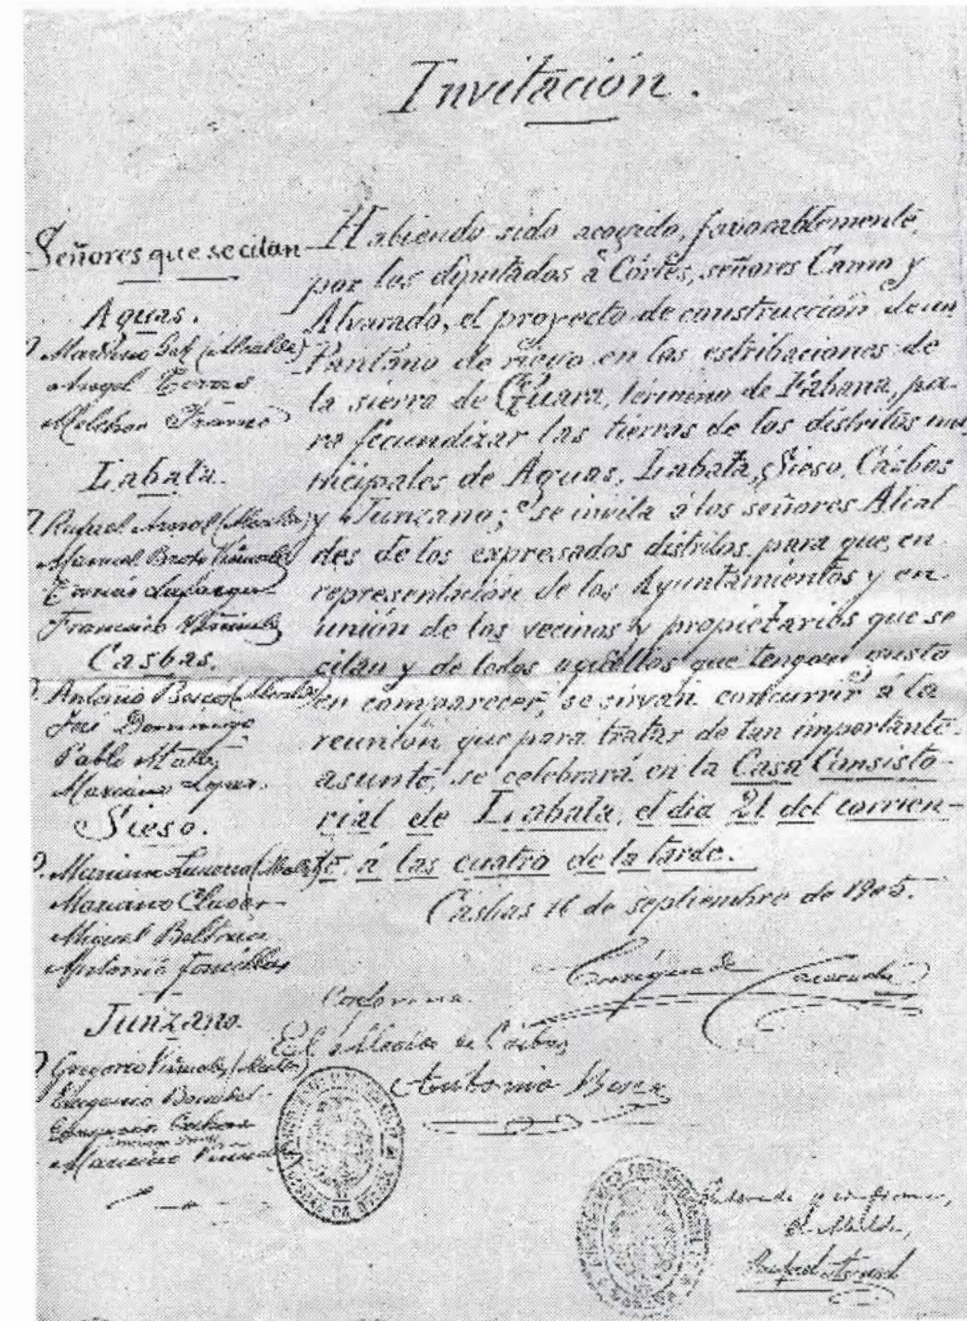 Invitación.
Señores que se citan
Aguas.
D. Mariano (Alcalde)
Angel Torres
Melchor
Labata.
D. Rafael Arnal (Alcalde)
Manuel Viñuales
Tomás Lafarga
Francisco Viñuales
Casbas.
D. Antonio Bescós (Alcalde)
José Domingo
Pablo
Mariano López.
Sieso.
D. Mariano (Alcalde)
Mariano Claver
Miguel Beltrán
Antonio Foncillas
Junzano.
D. Gregorio Viñuales (Alcalde)
Eugenio
Mariano Viñuales
Habiendo sido acogido, favorablemente,
por los diputados á Córtes, señores Camo y
Alvarado, el proyecto de construcción de un
Pantano de riego en las estribaciones de
la sierra de Guara, término de Fábana, pa-
ra fecundizar las tierras de los distritos mu-
nicipales de Aguas, Labata, Sieso, Casbas
y Junzano; se invita á los señores Alcal-
des de los expresados distritos para que, en
representación de los Ayuntamientos y en
unión de los vecinos y propietarios que se
citan y de todos aquellos que tengan gusto
en comparecer, se sirvan concurrir á la
reunión que para tratar de tan importante
asunto, se celebrará en la Casa Consisto-
rial de Labata, el dia 21 del corrien-
te, á las cuatro de la tarde.
Casbas 16 de septiembre de 1905.
Conforme.
El Alcalde de Casbas
Antonio Bescós
Enterado y conforme,
El Alcalde,
Rafael Arnal